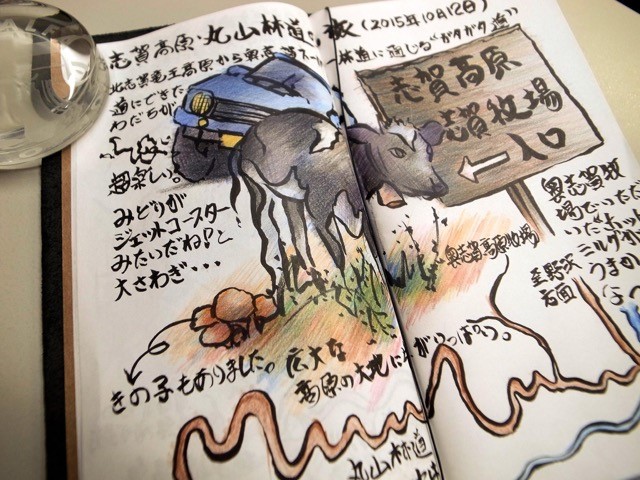 志賀高原・丸山林道
(2015年10月12日)
林道に通じる"ガタガタ道"
北志賀竜王高原から奥志賀スーパー
道にできた
わだちが
超楽しい。
みどりが
ジェットコースター
みたいだね!と
大さわぎ・・・
志賀高原
志賀牧場
入口
奥志賀牧
場でいただ
いたホット
ミルクが
うまか
奥志賀高原牧場
きの子もありました。広大な
高原の大地に牛がいっぱいつ。
丸山林道